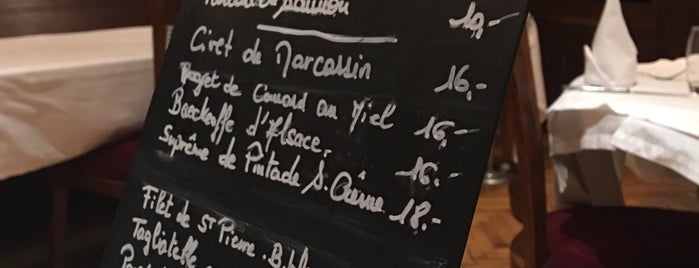 19,-
Civet de Marcassin 16,-
Magret de Canard au Miel 16,-
Baeckeoffe d'Alsace. 16.-
Suprême de Pintade S. Crème 18.-
Filet de St Pierre.
Tagliatelle